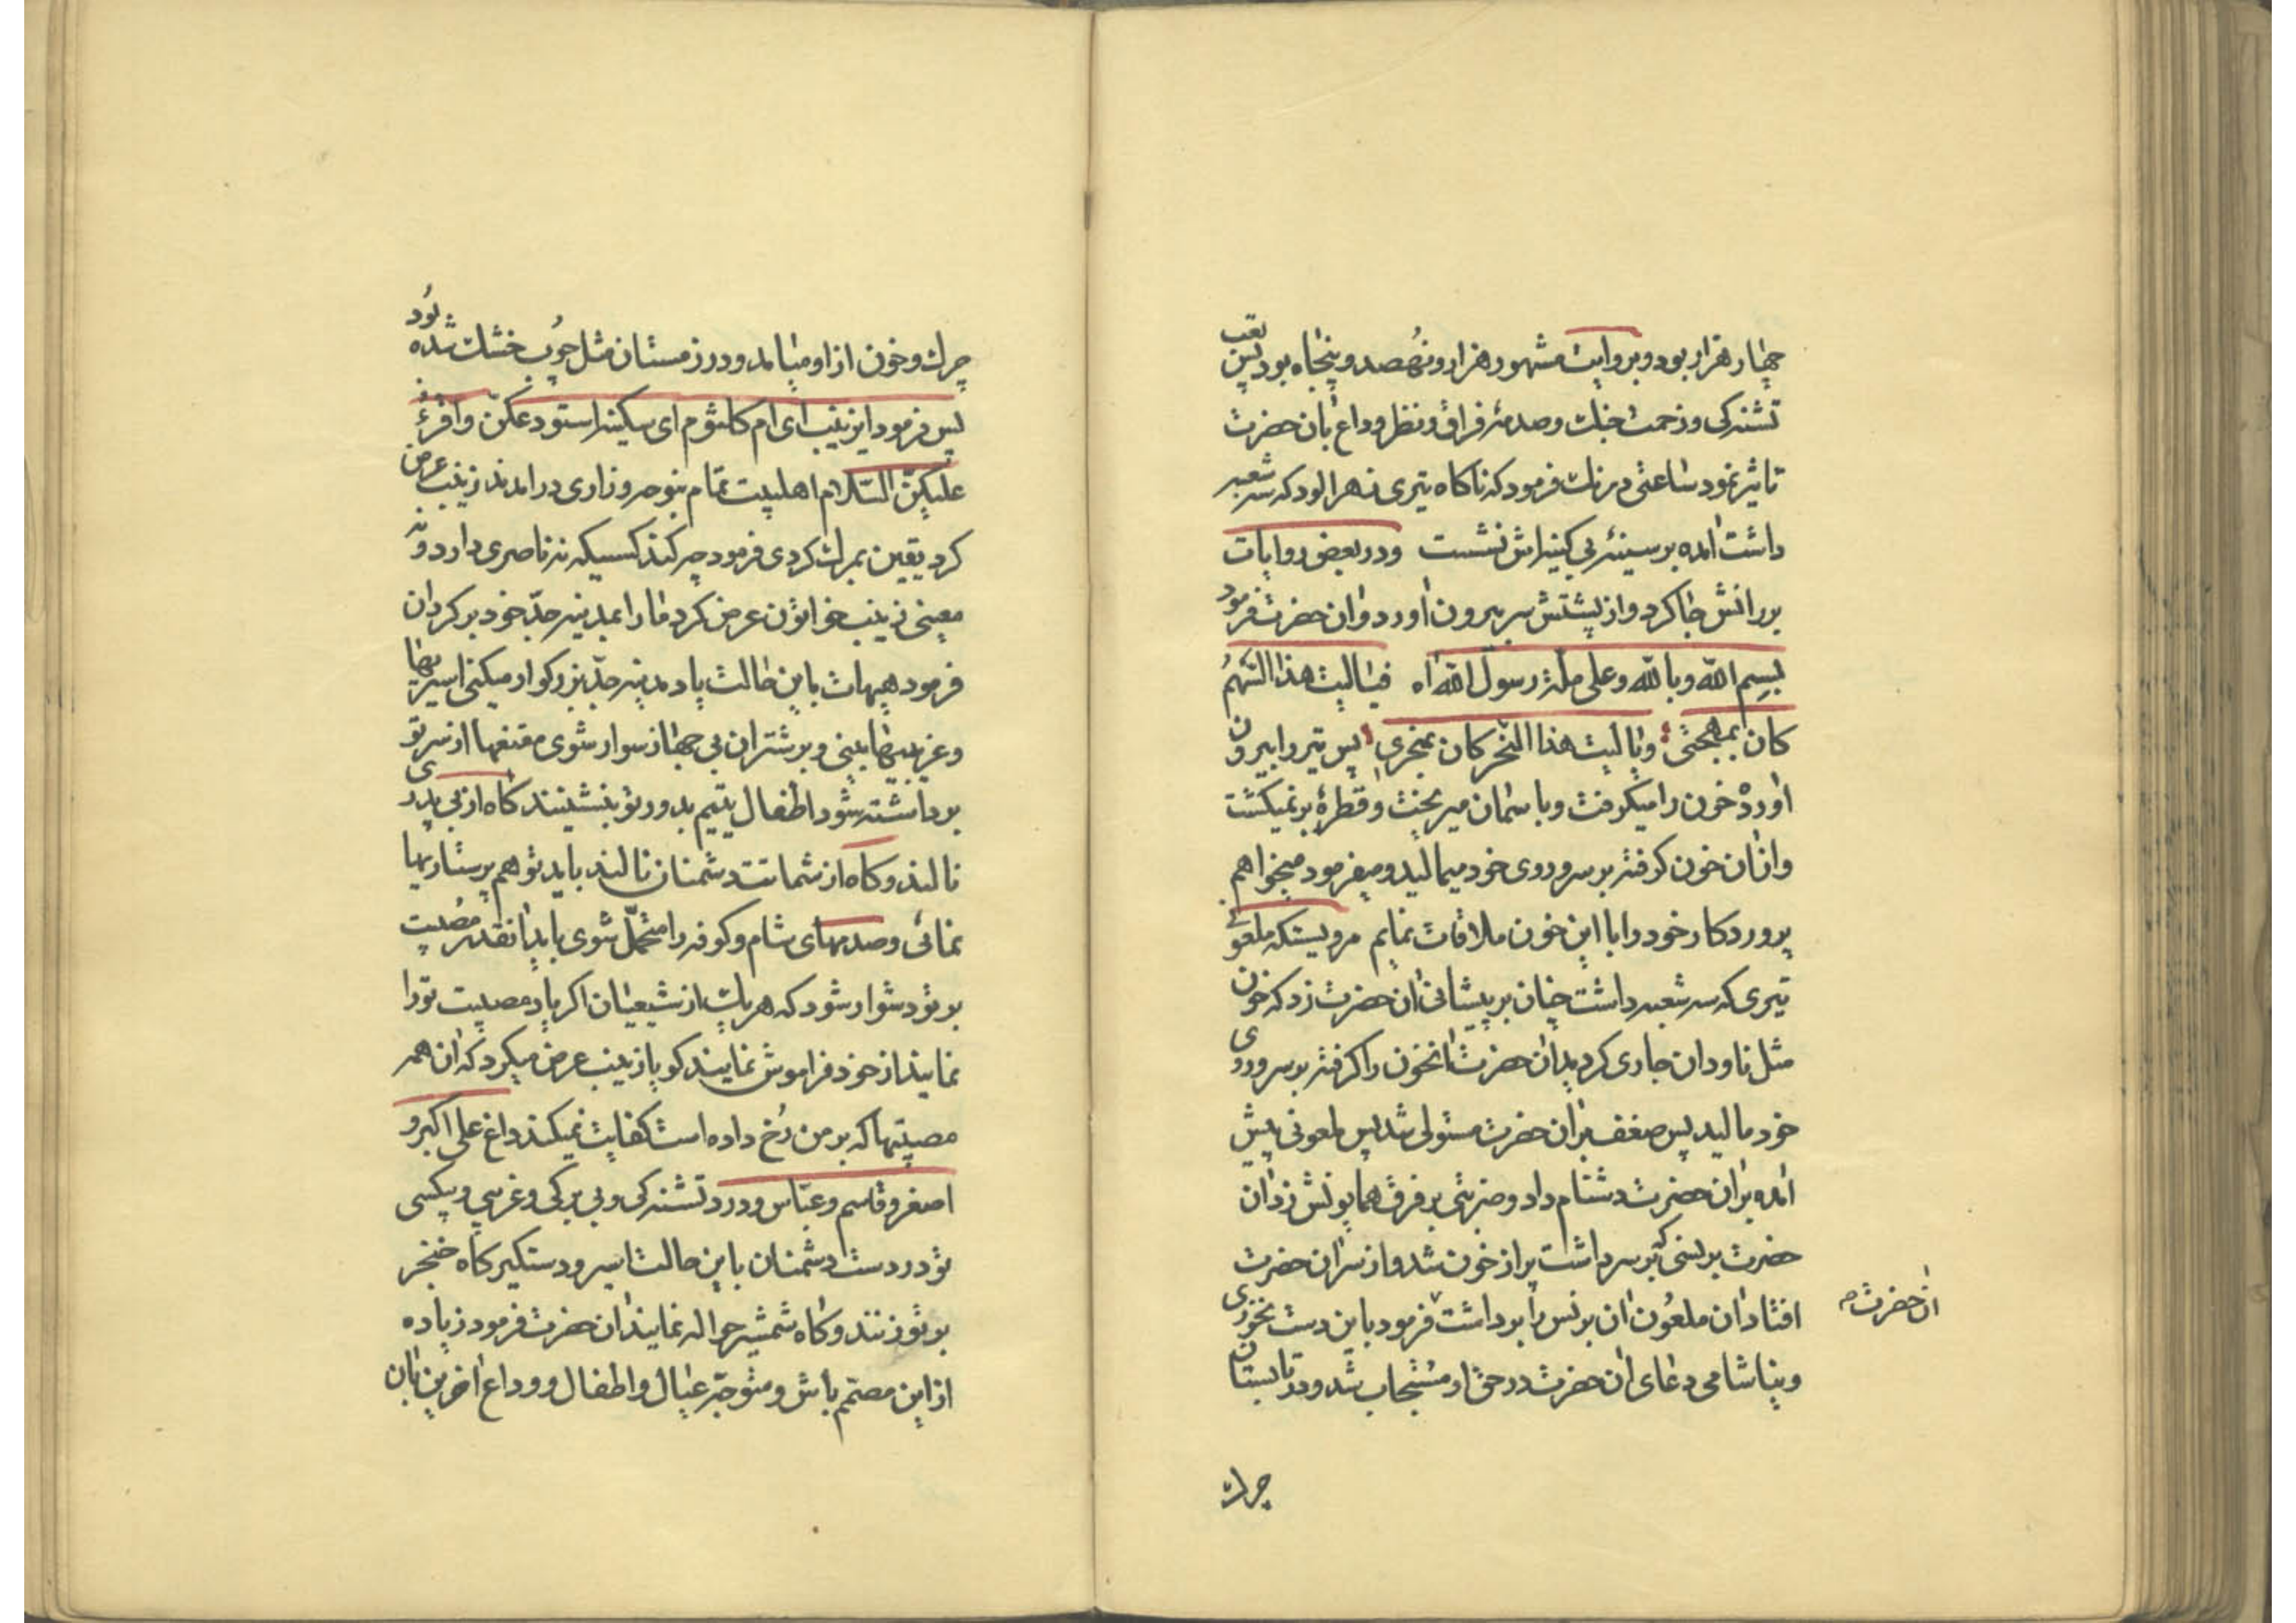 چهار هزار بود و بروایت مشهور هزار و نهصد و پنجاه بود پس تعب
تشنه‌کی و زحمت جنک و صدمهٔ فراق و نظر وداع بان حضرت
تاثیر نمود ساعتی درنک فرمود که ناکاه تیری زهرالود که سه شعبه
داشت امده بر سینهٔ بی کینه‌اش نشست و در بعض روایات
برانش جا کرد و از پشتش سر بیرون اورد و ان حضرت فرمود
بسم الله و بالله و علی ملة رسول الله اه فیالیت هذا السهم
کان بمهجتی و یا لیت هذا النحر کان بمنحری پس تیر را بیرون
اورده خون را میکرفت و باسمان میریخت و قطرهٔ برنمیکشت
و ازان خون کرفته بر سر و روی خود میمالید و میفرمود میخواهم
پروردکار خود را با این خون ملاقات نمایم مرویستکه ملعونی
تیری که سه شعبه داشت چنان بر پیشانی ان حضرت زد که خون
مثل ناودان جاری کردید ان حضرت انخون را کرفته بر سر و روی
خود مالید پس ضعف بران حضرت مستولی شد پس ملعونی پیش
امده بران حضرت دشنام داد و ضربتی بر فرق همایونش زد ان
حضرت برنسی که بر سر داشت پر از خون شد و از سر ان حضرت
افتاد ان ملعون ان برنس را برداشت فرمود باین دست نخوری
ان حضرت
و نیاشامی دعای ان حضرت در حق او مستجاب شد و در تابستان
چرک
چرک و خون از او میامد و در زمستان مثل چوب خشک شده بود
پس فرمود ای زینب ای ام کلثوم ای سکینه استودعکن و اقرء
علیکن السلام اهلبیت تمام بنوحه و زاری درامدند زینب عرض
کرد یقین بمرک کردی فرمود چه کند کسیکه نه ناصری دارد و نه
معینی زینب خواتون عرض کرد ما را بمدینه جد خود بر کردان
فرمود هیهات باین حالت یاد مدینه جد بزرکوار میکنی اسیریها
و غریبیها بینی و بر شتران بی جهاز سوار شوی مقنعها از سر تو
برداشته شود اطفال یتیم بدور تو بنشینند کاه از بی پدری
نالند و کاه از شماتت دشمنان نالند باید تو هم پرستاریها
نمائی و صدمهای شام و کوفه را متحمل شوی باید انقدر مصیبت
بر تو دشوار شود که هر یک از شیعیان اکر یاد مصیبت تو را
نمایند از خود فراموش نمایند کویا زینب عرض میکرد که ان همه
مصیبتها که بر من رخ داده است کفایت نمیکند داغ علی اکبر و
اصغر و قاسم و عباس و درد تشنه‌کی و بی برکی و غریبی و بیکسی
تو در دست دشمنان باین حالت اسیر و دستکیر کاه خنجر
بر تو زنند و کاه شمشیر حواله نمایند ان حضرت فرمود زیاده
از این مصمم باش و متوجه عیال و اطفال و وداع اخرین بان